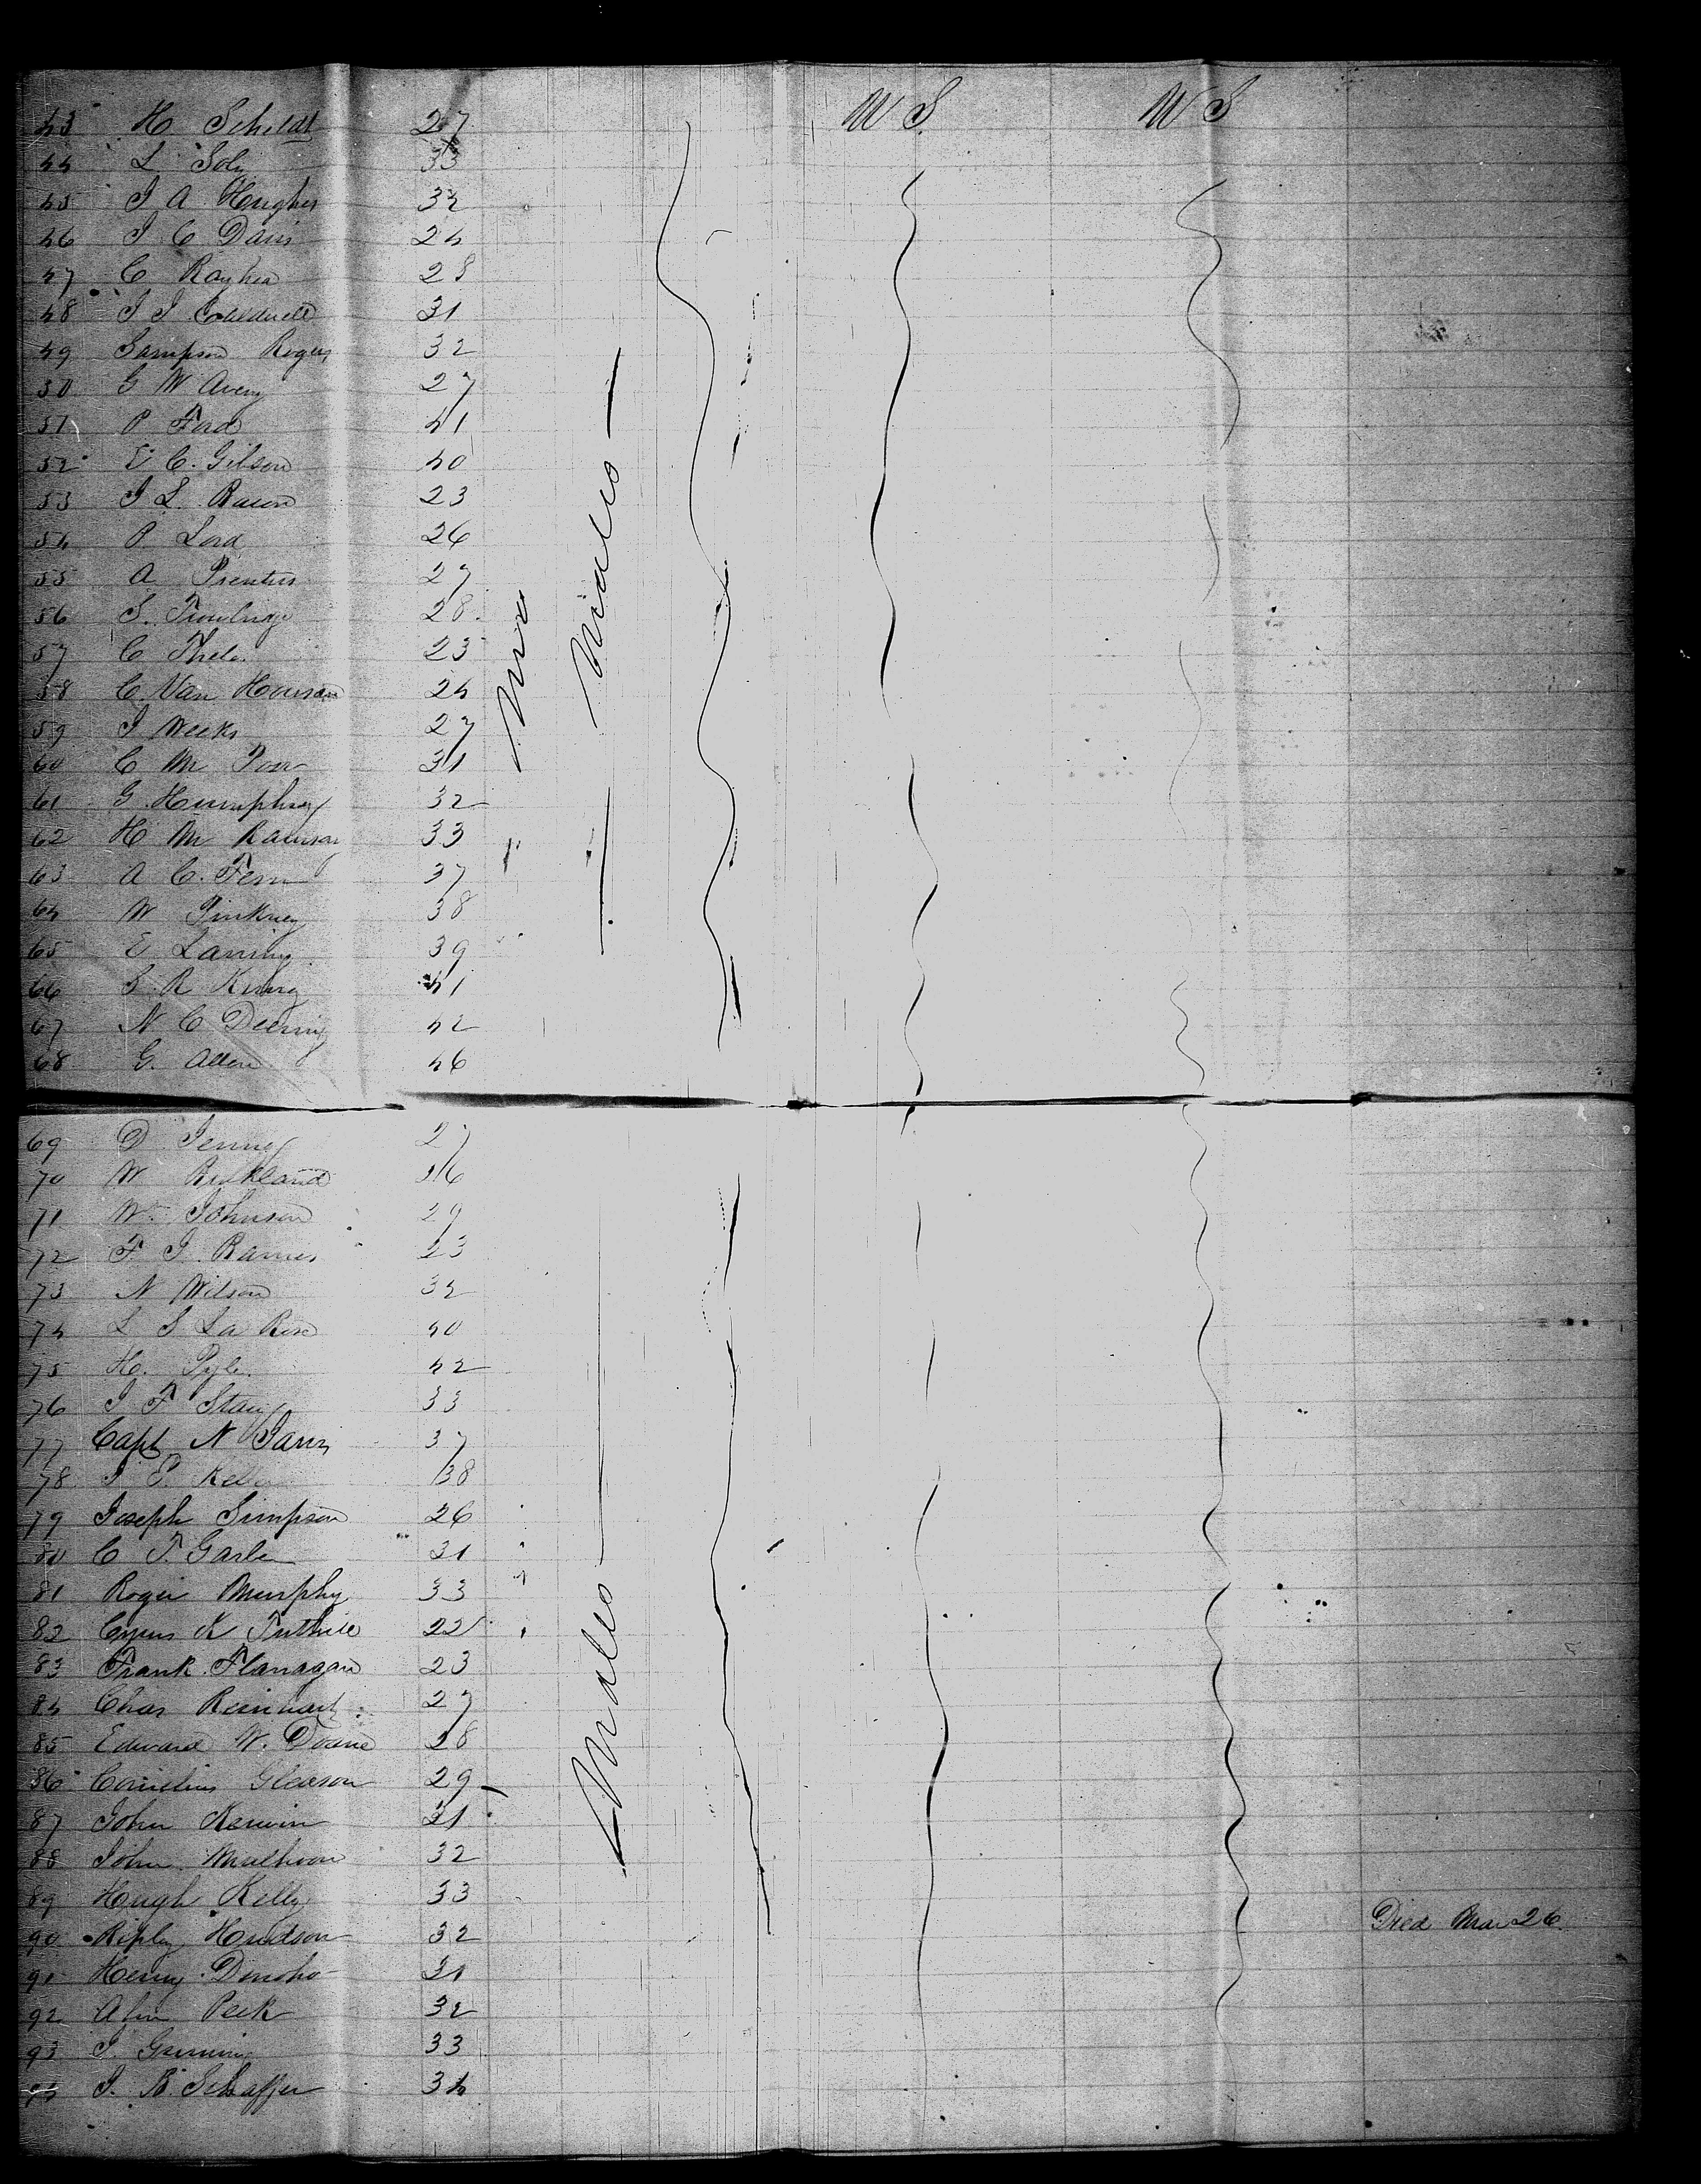 43 H Schildt 27 U S. U S
44 L Soly 33
45 J A Hughes 32
46 J C Davis 24
47 C Rayhea 28
48 J J Caldwell 31
49 Sampson Rogers 32
50 G W Avery 27
51 P Ford 41
52 E C. Gibson 40
53 J L. Bacon 23
54 P. Lord 26
55 A Prentiss 27
56 S. Trowbrige 28
57 C 23
58 C. Van Housen 24
59 J Weeks 27
60 C M 31
61 G. Humphrey 32
62 H M Ramsay 33
63 A C. Fern 37
64 W Pinkney 38
65 E Lansing 39
66 S. R King 41
67 N C Deering 42
68 G. Allen 46
Males
69 D Jenney 27
70 W Kirkland 16
71 Wm Johnson 29
72 F. J. Barnes 23
73 N Wilson 32
74 L S La Rose 40
75 H. Pyle 42
76 J F Stacy 33
77 Capt N Jarvis 37
78 J E. 38
79 Joseph Simpson 26
80 C F. 31
81 Roger Murphy 33
82 Cyrus K Tuthill 22
83 Frank Flanagan 23
84 Chas Reinhart 27
85 Edward W. Doane 28
86 Cornelius Gleason 29
87 John Kerwin 31
88 John 32
89 Hugh Kelly 33
90 Ripley Hudson 32 Died Mar 26
91 Henry Donoho 31
92 Peek 32
93 J. 33
94 J. B. Schaffer 34
Males